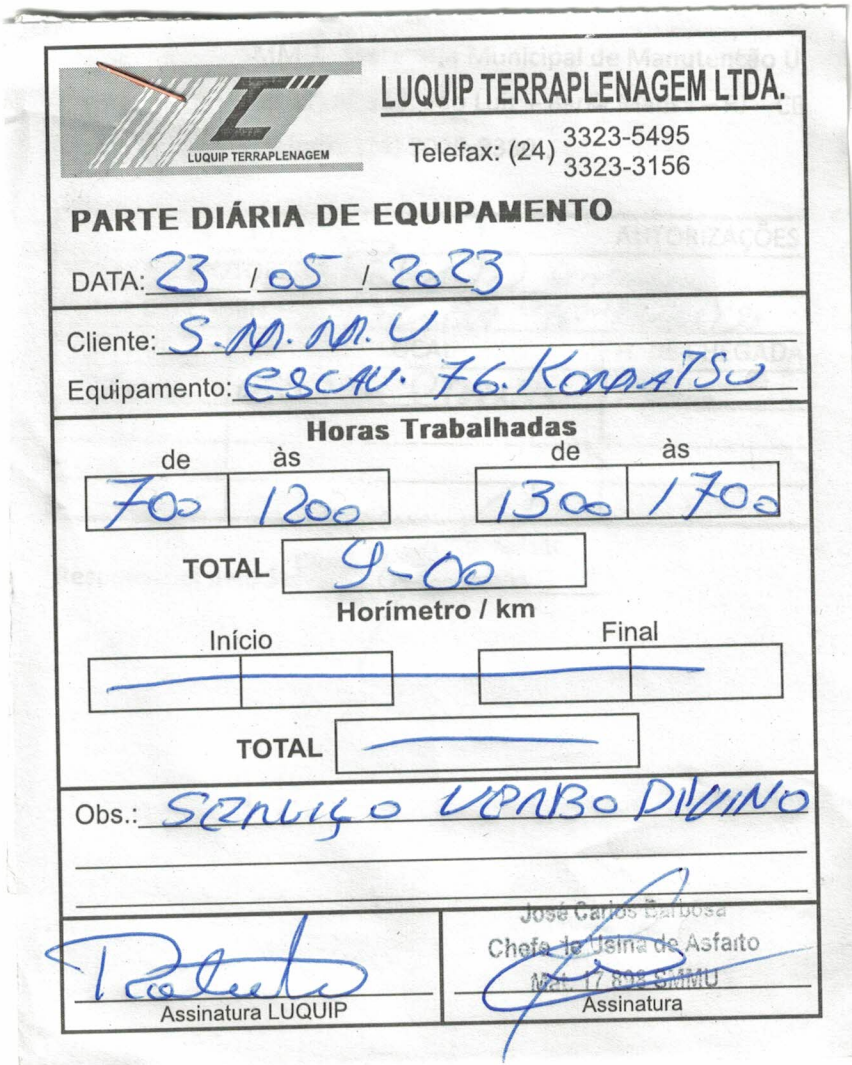 LUQUIP TERRAPLENAGEM
LUQUIP TERRAPLENAGEM LTDA.
Telefax: (24) 3323-5495
3323-3156
PARTE DIÁRIA DE EQUIPAMENTO
DATA: 23 / 05 / 2023
Cliente: S.M.M.U
Equipamento: ESCAV. 76. KOMATSU
Horas Trabalhadas
de às de às
700 1200 1300 1700
TOTAL 9-00
Horímetro / km
Início Final
TOTAL
Obs.: SERVIÇO VERBO DIVINO
José Carlos Barbosa
Chefe de Usina de Asfalto
Mat. 17 898 SMMU
Assinatura LUQUIP Assinatura